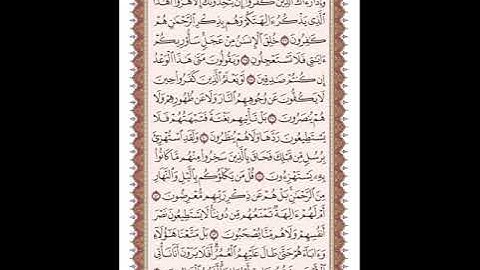 وَإِذَا رَءَاكَ ٱلَّذِينَ كَفَرُوٓا۟ إِن يَتَّخِذُونَكَ إِلَّا هُزُوًا أَهَٰذَا
ٱلَّذِى يَذْكُرُ ءَالِهَتَكُمْ وَهُم بِذِكْرِ ٱلرَّحْمَٰنِ هُمْ
كَٰفِرُونَ ۝ خُلِقَ ٱلْإِنسَٰنُ مِنْ عَجَلٍ سَأُو۟رِيكُمْ
ءَايَٰتِى فَلَا تَسْتَعْجِلُونِ ۝ وَيَقُولُونَ مَتَىٰ هَٰذَا ٱلْوَعْدُ
إِن كُنتُمْ صَٰدِقِينَ ۝ لَوْ يَعْلَمُ ٱلَّذِينَ كَفَرُوا۟ حِينَ
لَا يَكُفُّونَ عَن وُجُوهِهِمُ ٱلنَّارَ وَلَا عَن ظُهُورِهِمْ وَلَا
هُمْ يُنصَرُونَ ۝ بَلْ تَأْتِيهِم بَغْتَةً فَتَبْهَتُهُمْ فَلَا
يَسْتَطِيعُونَ رَدَّهَا وَلَا هُمْ يُنظَرُونَ ۝ وَلَقَدِ ٱسْتُهْزِئَ
بِرُسُلٍ مِّن قَبْلِكَ فَحَاقَ بِٱلَّذِينَ سَخِرُوا۟ مِنْهُم مَّا كَانُوا۟
بِهِۦ يَسْتَهْزِءُونَ ۝ قُلْ مَن يَكْلَؤُكُم بِٱلَّيْلِ وَٱلنَّهَارِ
مِنَ ٱلرَّحْمَٰنِ بَلْ هُمْ عَن ذِكْرِ رَبِّهِم مُّعْرِضُونَ ۝
أَمْ لَهُمْ ءَالِهَةٌ تَمْنَعُهُم مِّن دُونِنَا لَا يَسْتَطِيعُونَ نَصْرَ
أَنفُسِهِمْ وَلَا هُم مِّنَّا يُصْحَبُونَ ۝ بَلْ مَتَّعْنَا هَٰٓؤُلَآءِ
وَءَابَآءَهُمْ حَتَّىٰ طَالَ عَلَيْهِمُ ٱلْعُمُرُ أَفَلَا يَرَوْنَ أَنَّا نَأْتِى